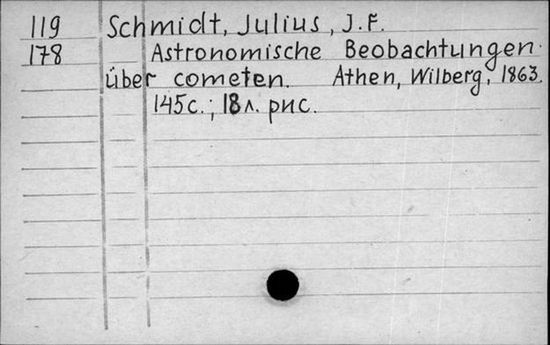 119 Schmidt, Julius, J.F.
178 Astronomische Beobachtungen
über cometen. Athen, Wilberg, 1863.
145с.; 18л. рис.